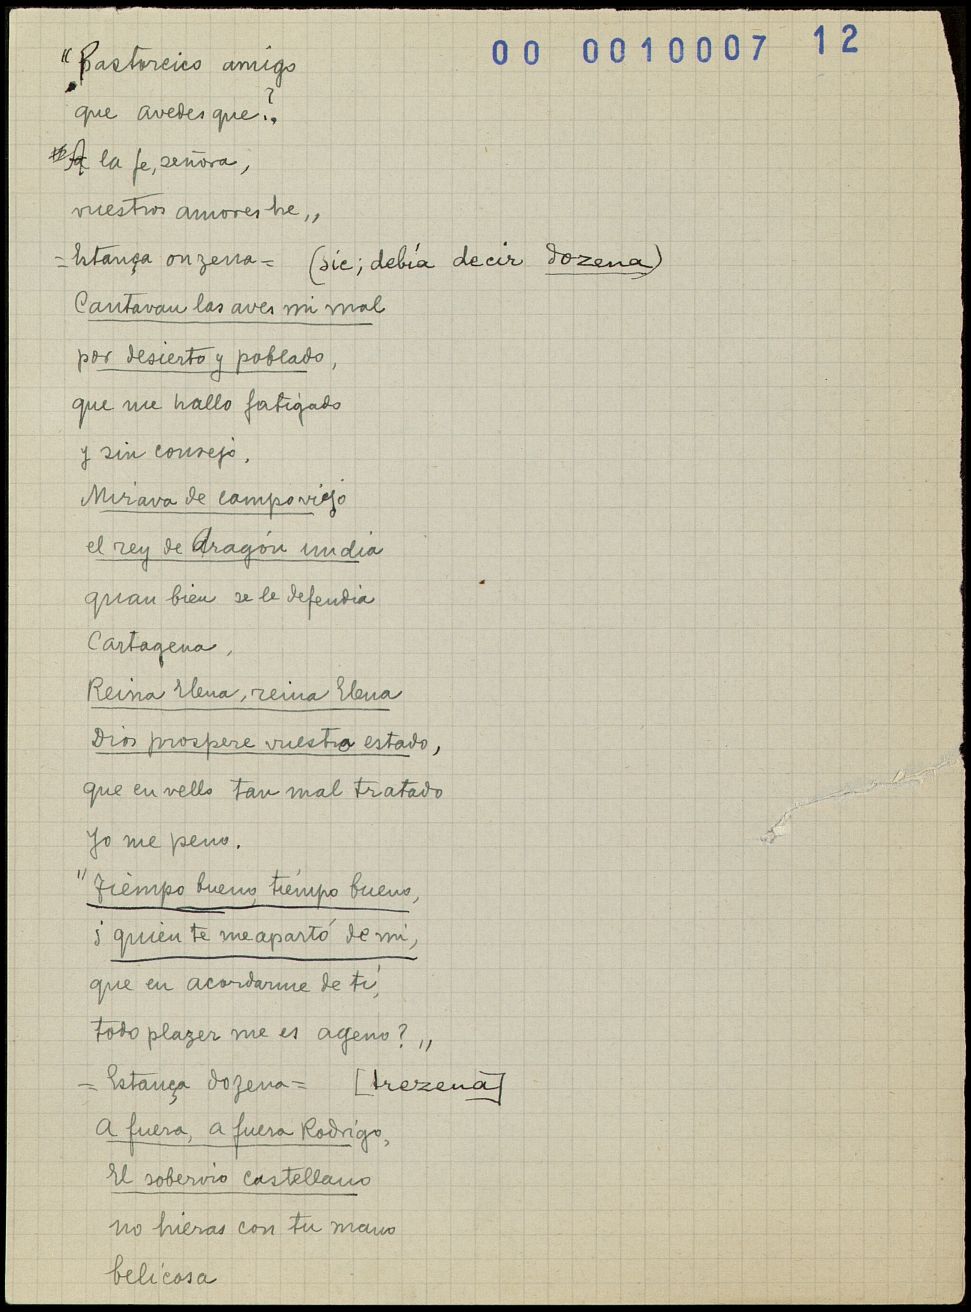 00 0010007 12
"Pastorcico amigo
que avedes que?.,
"A la fe, señora,
vuestros amores he,,
= Estança onzena = (sic; debía decir dozena)
Cantavan las aves mi mal
por desierto y poblado,
que me hallo fatigado
y sin consejo.
Mirava de campo viejo
el rey de Aragón un dia
quan bien se le defendia
Cartagena,
Reina Elena, reina Elena
Dios prospere vuestro estado,
que en vello tan mal tratado
Yo me peno.
"Tiempo bueno, tiempo bueno,
¿quién te me apartó de mi,
que en acordarme de ti,
todo plazer me es ageno?,,
= Estança dozena = [trezena]
A fuera, a fuera Rodrigo,
El sobervio castellano
no hieras con tu mano
belicosa